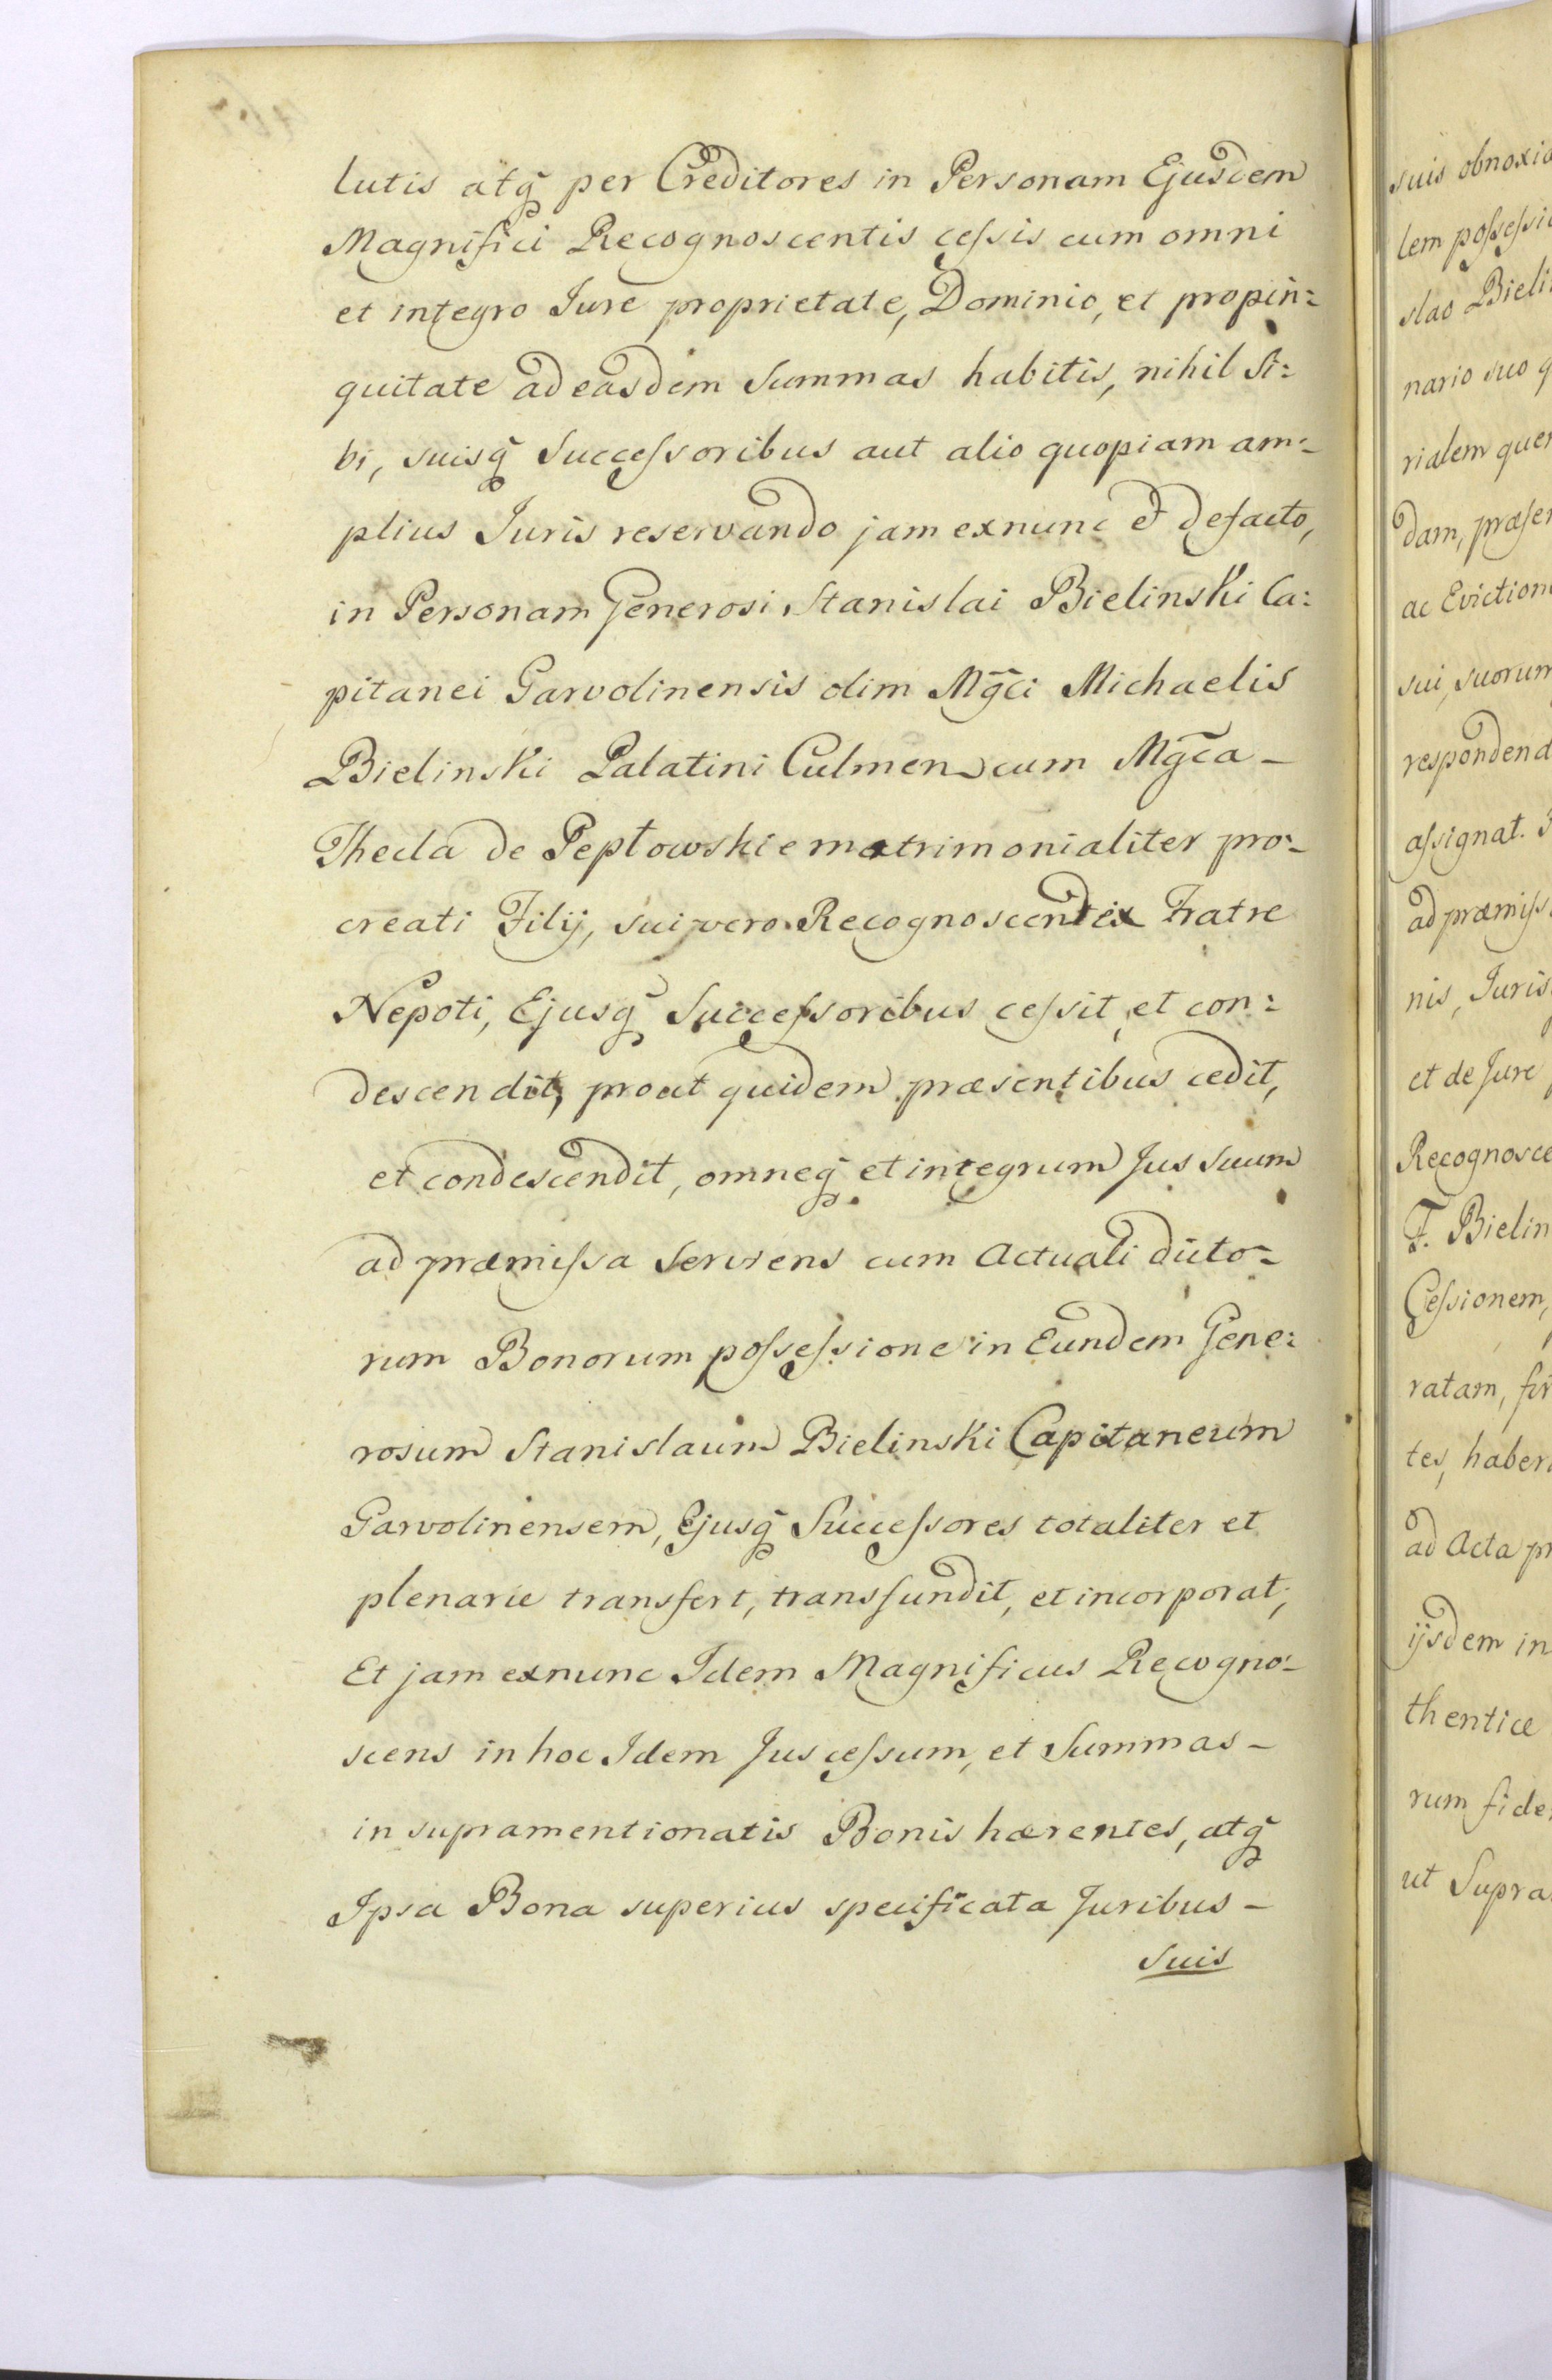 lutis atq̃ per Creditores in Personam Ejusdem
Magnifici Recognoscentis ceſsis cum omni
et integro Jure proprietate, Dominio, et propin:
quitate ad easdem Summas habitis, nihil Si:
bi, suisq̃ Succeſsoribus aut alio quopiam am:
plius Juris reservando jam exnunc & defacto,
in Personam Generosi Stanislai Bielinski Ca:
pitanei Garvolinensis olim Mg̃ci Michaelis
Bielinski Palatini Culmen cum Mg̃ca -
Thecla de Pepłowskie matrimonialiter pro:
creati Filij, sui vero Recognoscentis ex Fratre
Nepoti, Ejusq̃ Succeſsoribus ceſsit, et con:
descendit, prout quidem præsentibus cedit,
et condescendit, omneq̃ et integrum Jus Suum
ad præmiſsa Serviens cum Actuali dicto:
rum Bonorum poſseſsione in Eundem Gene:
rosum Stanislaum Bielinski Capitaneum
Garvolinensem, Ejusq̃ Succeſsores totaliter et
plenarie transfert, transfundit, et incorporat,
Et jam exnunc Idem Magnificus Recogno:
scens in hoc Idem Jus ceſsum, et Summas -
in supramentionatis Bonis hærentes, atq̃
Ipsa Bona superius specificata Juribus -
Suis
suis obnoxia
lem poſseſsio
slao Bieli
nario suo q
rialem quer
dam, præser
ac Eviction
sui, suorum
respondend
aſsignat.
ad præmiſs
nis, Juris
et de Jure
Recognosce
F. Bielin
Ceſsionem,
ratam, fir
tes, haber
ad Acta pr
ijsdem in
thentice
rum fide
ut Supra.